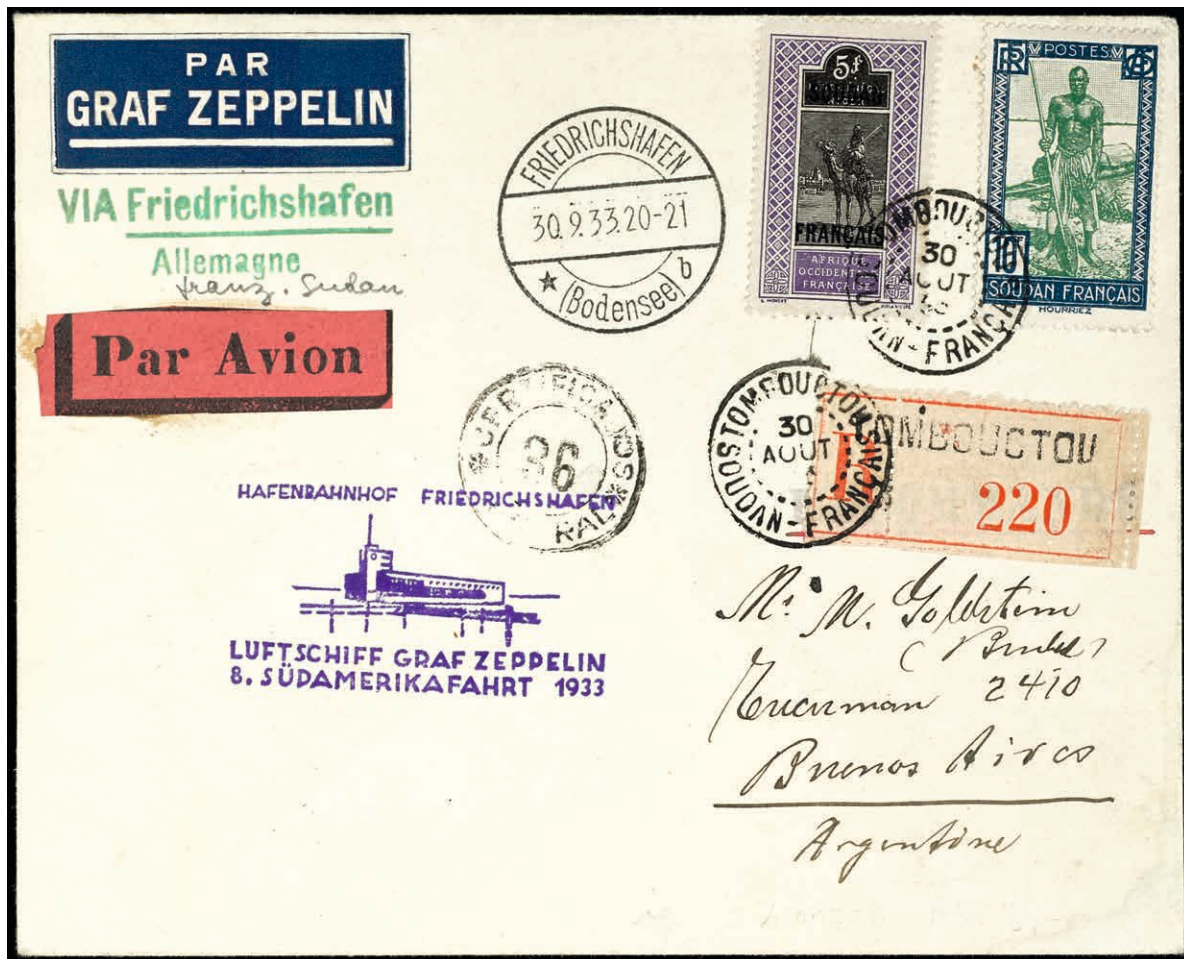 PAR
GRAF ZEPPELIN
VIA Friedrichshafen
Allemagne
franz. Sudan
Par Avion
FRIEDRICHSHAFEN
30.9.33.20-21
★ (Bodensee) b
5f
FRANÇAIS
AFRIQUE
OCCIDENTALE
FRANÇAISE
RF POSTES
10F
SOUDAN FRANÇAIS
HOURRIEZ
TOMBOUCTOU
30
AOUT
SOUDAN-FRANÇAIS
TOMBOUCTOU
30
AOUT
SOUDAN-FRANÇAIS
R TOMBOUCTOU
220
CERTIFICADOS
36
HAFENBAHNHOF FRIEDRICHSHAFEN
LUFTSCHIFF GRAF ZEPPELIN
8. SÜDAMERIKAFAHRT 1933
Mr M. Goldstein
Tucuman 2410
Buenos Aires
Argentine